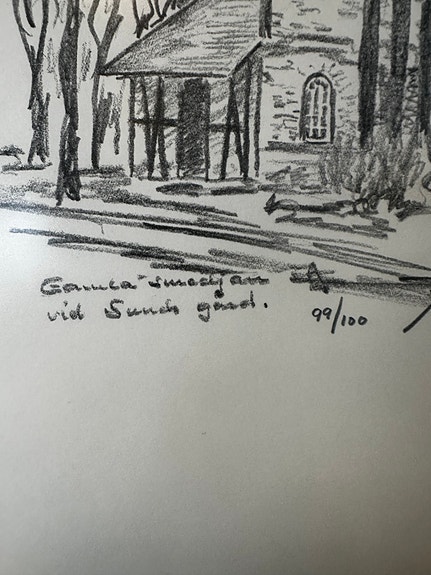 Gamla smedjan
vid Sunds gård.
99/100